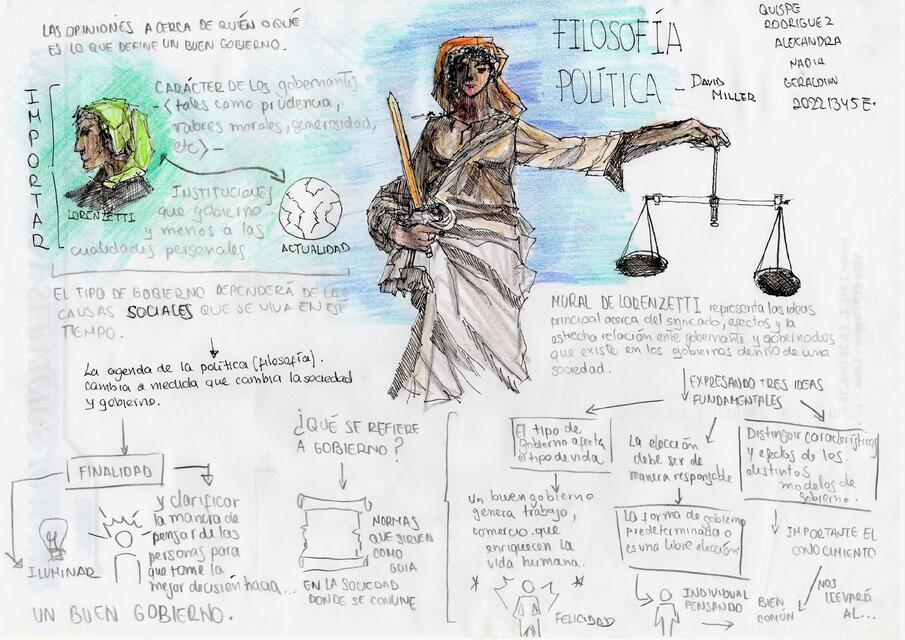 LAS OPINIONES A CERCA DE QUIÉN O QUÉ
ES LO QUE DEFINE UN BUEN GOBIERNO.
FILOSOFÍA
POLÍTICA
- DAVID
MILLER
QUISPE
RODRIGUEZ
ALEXANDRA
NADIA
GERALDIN
20221345E.
IMPORTAR
CARÁCTER DE LOS gobernantes
- < tales como prudencia,
valores morales, generosidad,
etc > -
LORENZETTI
INSTITUCIONES
que gobierno...
y menos a las
cualidades personales
ACTUALIDAD
EL TIPO DE GOBIERNO DEPENDERÁ DE LAS
CAUSAS SOCIALES QUE SE VIVA EN ESE
TIEMPO.
La agenda de la política (filosofía).
cambia a medida que cambia la sociedad
y gobierno.
FINALIDAD
ILUMINAR
y clarificar
la manera de
pensar de las
personas para
que tome la
mejor decisión hacia...
UN BUEN GOBIERNO.
¿QUÉ SE REFIERE
A GOBIERNO?
NORMAS
QUE SIRVEN
COMO
GUIA
EN LA SOCIEDAD
DONDE SE CONVINE
MURAL DE LORENZETTI representa las ideas
principal acerca del signicado, efectos y la
estrecha relación ente gobernante y gobernados
que existe en los gobiernos dentro de una
sociedad.
EXPRESANDO TRES IDEAS
FUNDAMENTALES
El tipo de
gobierno afecta
el tipo de vida
un buen gobierno
genera trabajo,
comercio que
enriquecen la
vida humana.
FELICIDAD
LA elección
debe ser de
manera responsable
La forma de gobierno
predeterminada o
es una libre elección
INDIVIDUAL
PENSANDO
BIEN
COMÚN
Distinguir características
y efectos de los
distintos
modelos de
gobierno.
IMPORTANTE EL
CONOCIMIENTO
NOS
LLEVARÁ
AL...